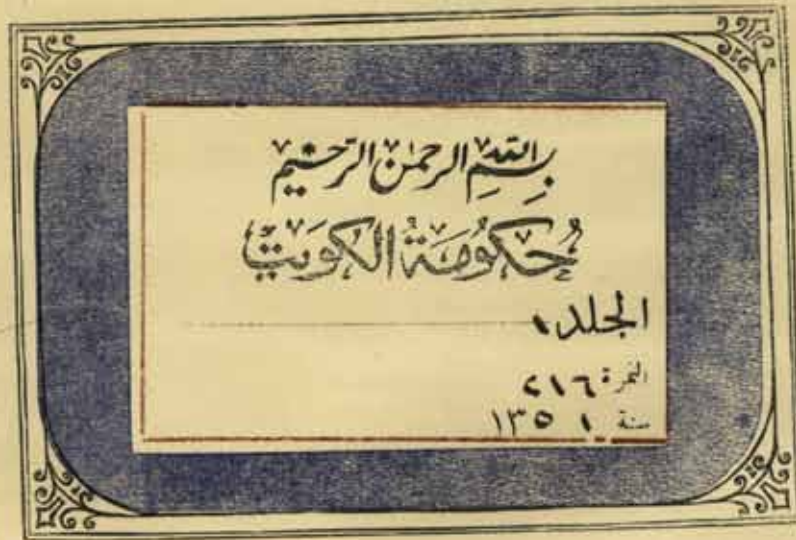 بسم الله الرحمن الرحيم
حكومة الكويت
الجلد ١
النمرة ٢١٦
سنة ١٣٥١